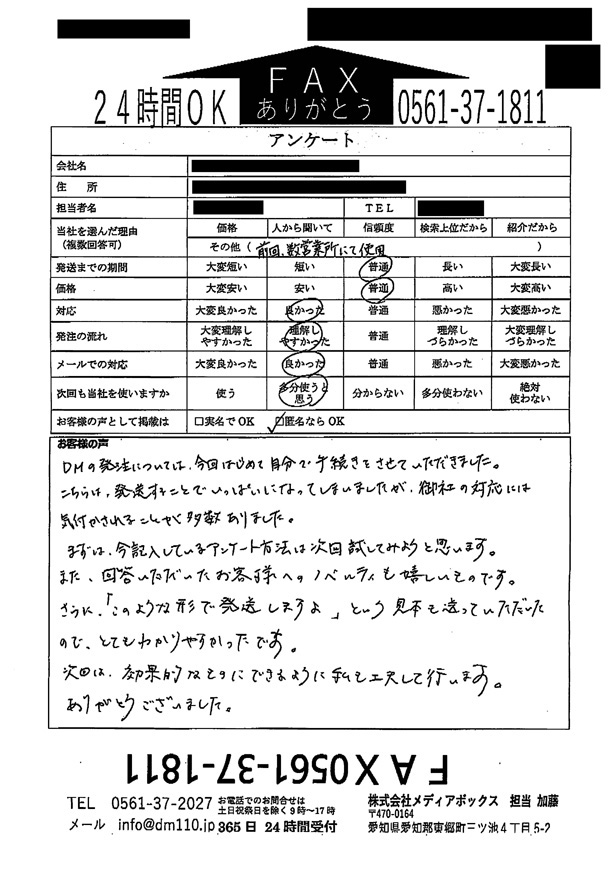 FAX
ありがとう
24時間OK
0561-37-1811
アンケート
会社名
住 所
担当者名 TEL
当社を選んだ理由(複数回答可) 価格 人から聞いて 信頼度 検索上位だから 紹介だから
その他( 前回、数営業所にて使用 )
発送までの期間 大変短い 短い 普通 長い 大変長い
価格 大変安い 安い 普通 高い 大変高い
対応 大変良かった 良かった 普通 悪かった 大変悪かった
発注の流れ 大変理解しやすかった 理解しやすかった 普通 理解しづらかった 大変理解しづらかった
メールでの対応 大変良かった 良かった 普通 悪かった 大変悪かった
次回も当社を使いますか 使う 多分使うと思う 分からない 多分使わない 絶対使わない
お客様の声として掲載は □実名でOK □匿名ならOK
お客様の声
DMの発注については、今回はじめて自分で手続きをさせていただきました。
こちらは、発送することでいっぱいになってしまいましたが、御社の対応には
気付かされることが多数ありました。
まずは、今記入しているアンケート方法は次回試してみようと思います。
また、回答いただいたお客様へのノベルティも嬉しいものです。
さらに、「このような形で発送しますよ」という見本も送っていただいた
ので、とてもわかりやすかったです。
次回は、効果的なものにできるように私も工夫して行います。
ありがとうございました。
FAX0561-37-1811
TEL 0561-37-2027 お電話でのお問合せは
土日祝祭日を除く9時~17時
メール info@dm110.jp 365日 24時間受付
株式会社メディアボックス 担当 加藤
〒470-0164
愛知県愛知郡東郷町三ツ池4丁目5-2